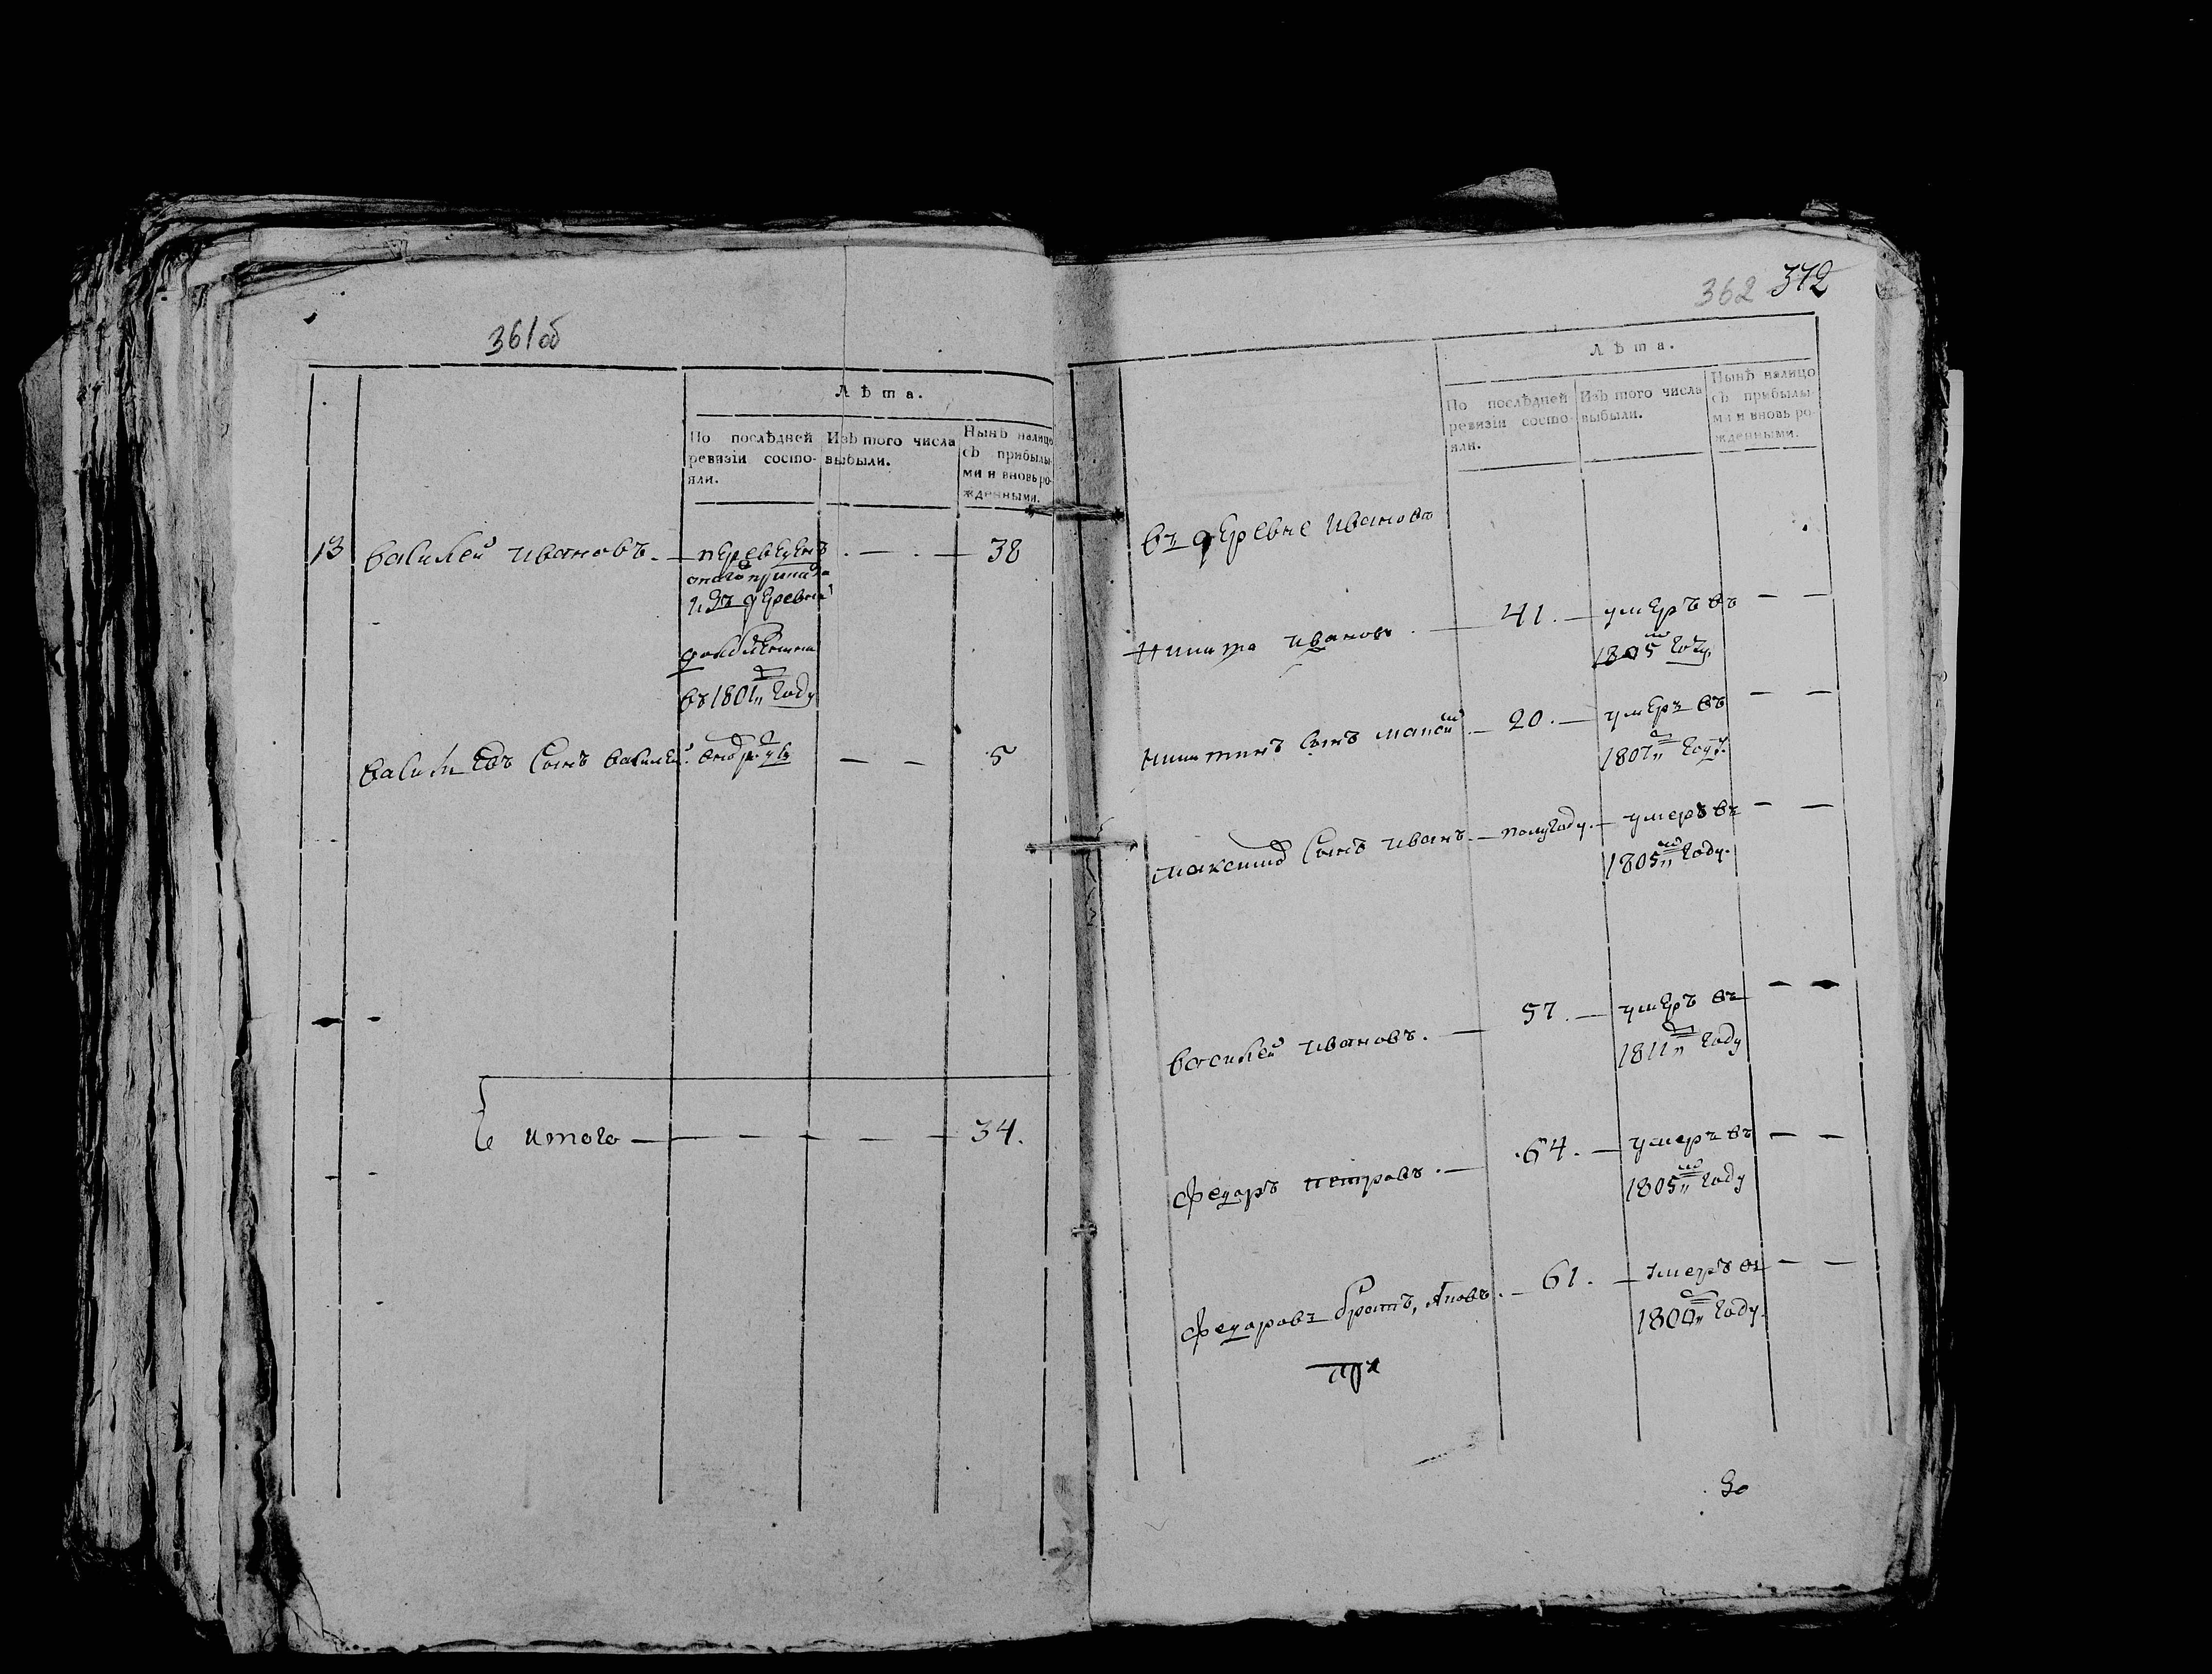 361 об
Лѣта.
По послѣдней ревизіи состояли.
Изъ того числа выбыли.
Нынѣ налицо съ прибылыми и вновь рожденными.
13 василей ивановъ. — переведенъ — 38
изъ деревни
въ 1801 году
василь евъ сынъ василей. — — 5
итого — — — — — 34.
362 372
Лѣта.
По послѣдней ревизіи состояли.
Изъ того числа выбыли.
Нынѣ налицо съ прибылыми и вновь рожденными.
въ деревне иванова
никита ивановъ. — 41. — умеръ въ — —
1805 году
никитинъ сынъ — 20. — умеръ въ — —
1807 году.
сынъ иванъ. — полугоду. — умеръ въ — —
1805 году.
василей ивановъ. — 57. — умеръ въ — —
1811 году
федаръ петровъ. — 64. — умеръ въ — —
1805 году
федаровъ братъ, — 61. — умеръ въ — —
1800 году.